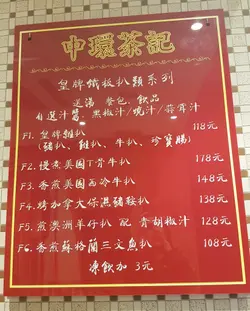 中環茶記
皇牌鐵板扒類系列
送湯 餐包 飲品
自選汁醬 黑椒汁/燒汁/蒜茸汁
F1. 皇牌雜扒 118元
(豬扒、雞扒、牛扒、珍寶腸)
F2. 慢煮美国T骨牛扒 178元
F3. 香煎美国西冷牛扒 148元
F4. 烤加拿大保濕豬鞍扒 138元
F5. 煎澳洲羊仔扒 配 青胡椒汁 128元
F6. 香煎蘇格蘭三文魚扒 108元
凍飲加 3元